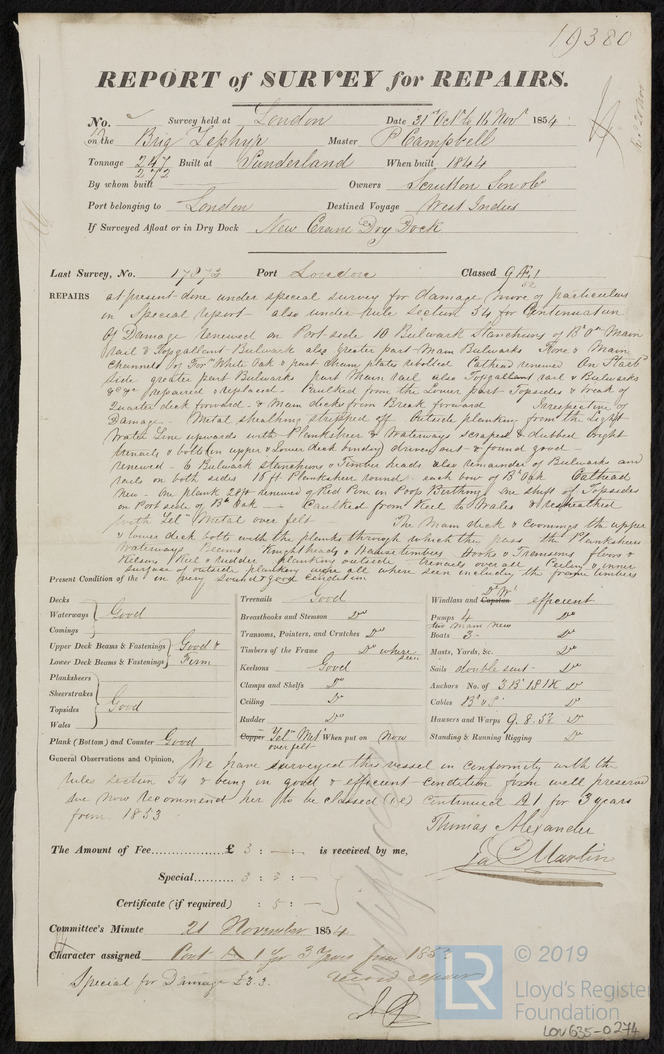 19380
REPORT of SURVEY for REPAIRS.
No. Survey held at London Date 31st Octr to 16 Novr 1854
on the Brig Zephyr Master P Campbell
Tonnage 247 272 Built at Sunderland When built 1844
By whom built Owners Scrutton Son & Co
Port belonging to London Destined Voyage West Indies
If Surveyed Afloat or in Dry Dock New Crane Dry Dock
Last Survey, No. 17873 Port London Classed 9 Æ 1
REPAIRS at present done under special survey for damage (more of particulars
in Special report also under rule section 54 for Continuation
Of Damage renewed on Port side 10 Bulwark Stanchions of Bk Oak Main
rail & Topgallant Bulwark also greater part Main Bulwarks Fore & Main
Channels of Forn White Oak & part Chain plates rebolted Cathead renewed On Starbd
side greater part Bulwarks part Main rail also Topgallant rail & Bulwarks
&c &c repaired & replaced - Caulked from the Lower part Topsides & break of
Quarter deck forward - & Main decks from Break forward Irrespective of
Damage - Metal sheathing stripped off Outside planking from the light
Water Line upwards with Planksheer & Waterways scraped & dubbed bright
trenails & bolts (in upper & Lower deck binding) driven out & found good -
renewed - 6 Bulwark stanchions & Timber heads also remainder of Bulwarks and
rails on both sides 18 ft Planksheer round each bow of Bk Oak Cathead
New - One plank 28 ft renewed of Red Pine in Poop Berthing One shift of Topsides
on Port side of Bk Oak - Caulked from Keel to Wales & resheathed
with Yelw Metal over felt The Main deck & Coomings the upper
& lower deck bolts with the planks through which they pass the Planksheers
Waterways Beams Knightheads & Hawsetimbers Hooks & Transoms floors &
Kelson Keel & rudder planking outside trenails over all Ceiling & inner
surface of outside planking were all where seen including the frame timbers
Present Condition of the in very sound & good condition
Decks
Waterways Good
Comings
Upper Deck Beams & Fastenings Good &
Lower Deck Beams & Fastenings Firm
Planksheers
Sheerstrakes
Topsides Good
Wales
Plank (Bottom) and Counter Good
Treenails Good
Breasthooks and Stemson Do
Transoms, Pointers, and Crutches Do
Timbers of the Frame Do where seen
Keelsons Good
Clamps and Shelfs Do
Ceiling Do
Rudder Do
Copper Yelw Metl over felt When put on Now
Windlass and Capstan efficient
Pumps 4 Do
two Main New
Boats 3 - Do
Masts, Yards, &c. Do
Sails double suit - Do
Anchors No. of 3 Bk 1 S 1 K Do
Cables Do
Hausers and Warps 9. 8. 5½ Do
Standing & Running Rigging Do
General Observations and Opinion, We have surveyed this vessel in conformity with the
rules section 54 & being in good & efficient condition from well preserved
due now recommend her to be classed (i e) continued A1 for 3 years
from 1853
Thomas Alexander
Jas C Martin
The Amount of Fee £ 3 : - : - is received by me,
Special 3 : 3 : -
Certificate (if required) : 5 : -
Committee's Minute 21 November 1854
Character assigned Cont A 1 for 3 Years from 1853
Special for Damage £3.3. record repairs
LR
© 2019
Lloyd's Register
Foundation
LON635-0274